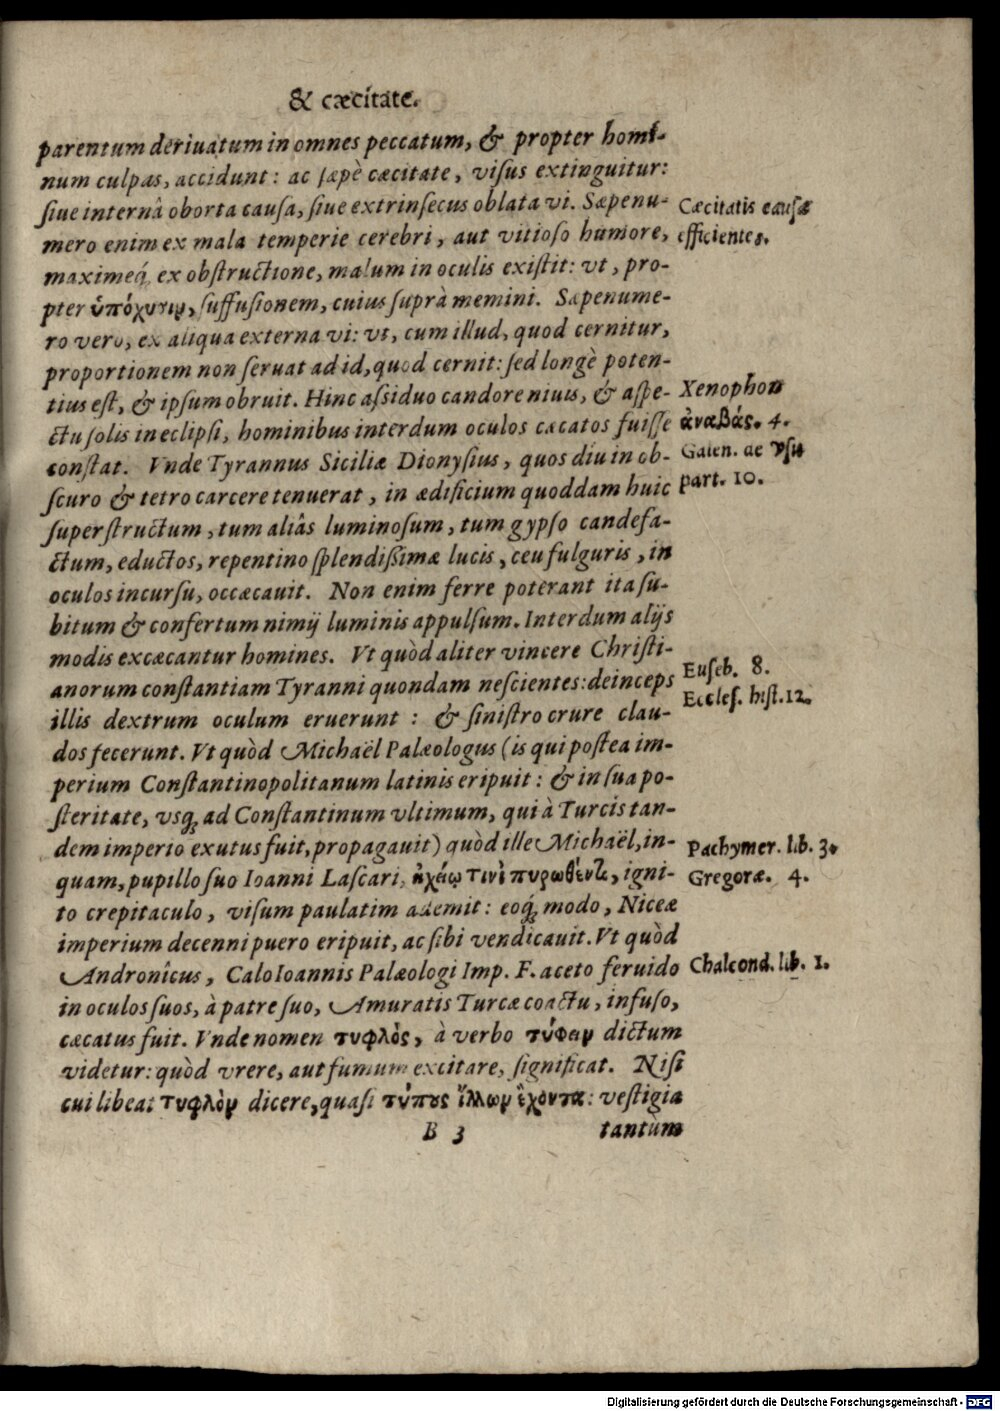 & cæcitate.
parentum deriuatum in omnes peccatum, & propter homi-
num culpas, accidunt: ac sæpè cæcitate, visus extinguitur:
siue internâ oborta causa, siue extrinsecus oblata vi. Sæpenu-
mero enim ex mala temperie cerebri, aut vitioso humore,
maximeq́; ex obstructione, malum in oculis existit: vt, pro-
pter ὑπόχυσιν, suffusionem, cuius suprà memini. Sæpenume-
ro vero, ex aliqua externa vi: vt, cum illud, quod cernitur,
proportionem non seruat ad id, quod cernit: sed longè poten-
tius est, & ipsum obruit. Hinc assiduo candore niuis, & aspe-
ctu solis in eclipsi, hominibus interdum oculos cæcatos fuisse
constat. Vnde Tyrannus Siciliæ Dionysius, quos diu in ob-
scuro & tetro carcere tenuerat, in ædificium quoddam huic
superstructum, tum aliâs luminosum, tum gypso candefa-
ctum, eductos, repentino splendissimæ lucis, ceu fulguris, in
oculos incursu, occæcauit. Non enim ferre poterant ita su-
bitum & confertum nimij luminis appulsum. Interdum alijs
modis excæcantur homines. Vt quòd aliter vincere Christi-
anorum constantiam Tyranni quondam nescientes: deinceps
illis dextrum oculum eruerunt: & sinistro crure clau-
dos fecerunt. Vt quòd Michaël Palæologus (is qui postea im-
perium Constantinopolitanum latinis eripuit: & in sua po-
steritate, vsq; ad Constantinum vltimum, qui à Turcis tan-
dem imperio exutus fuit, propagauit) quòd ille Michaël, in-
quam, pupillo suo Ioanni Lascari, ἠχείῳ τινὶ πυρωθέντι, igni-
to crepitaculo, visum paulatim ademit: eoq́; modo, Niceæ
imperium decenni puero eripuit, ac sibi vendicauit. Vt quòd
Andronîcus, CaloIoannis Palæologi Imp. F. aceto feruido
in oculos suos, à patre suo, Amuratis Turcæ coactu, infuso,
cæcatus fuit. Vnde nomen τυφλὸς, à verbo τύφειν dictum
videtur: quòd vrere, aut fumum excitare, significat. Nisi
cui libeat τυφλὸν dicere, quasi τύπους ἴλλων ἔχοντα: vestigia
B 3 tantùm
Cæcitatis causæ
efficientes.
Xenophon
ἀναβάς. 4.
Galen. de vsu
part. 10.
Euseb. 8.
Eccles. hist. 12.
Pachymer. lib. 3.
Gregoræ. 4.
Chalcond. lib. 1.
Digitalisierung gefördert durch die Deutsche Forschungsgemeinschaft - DFG